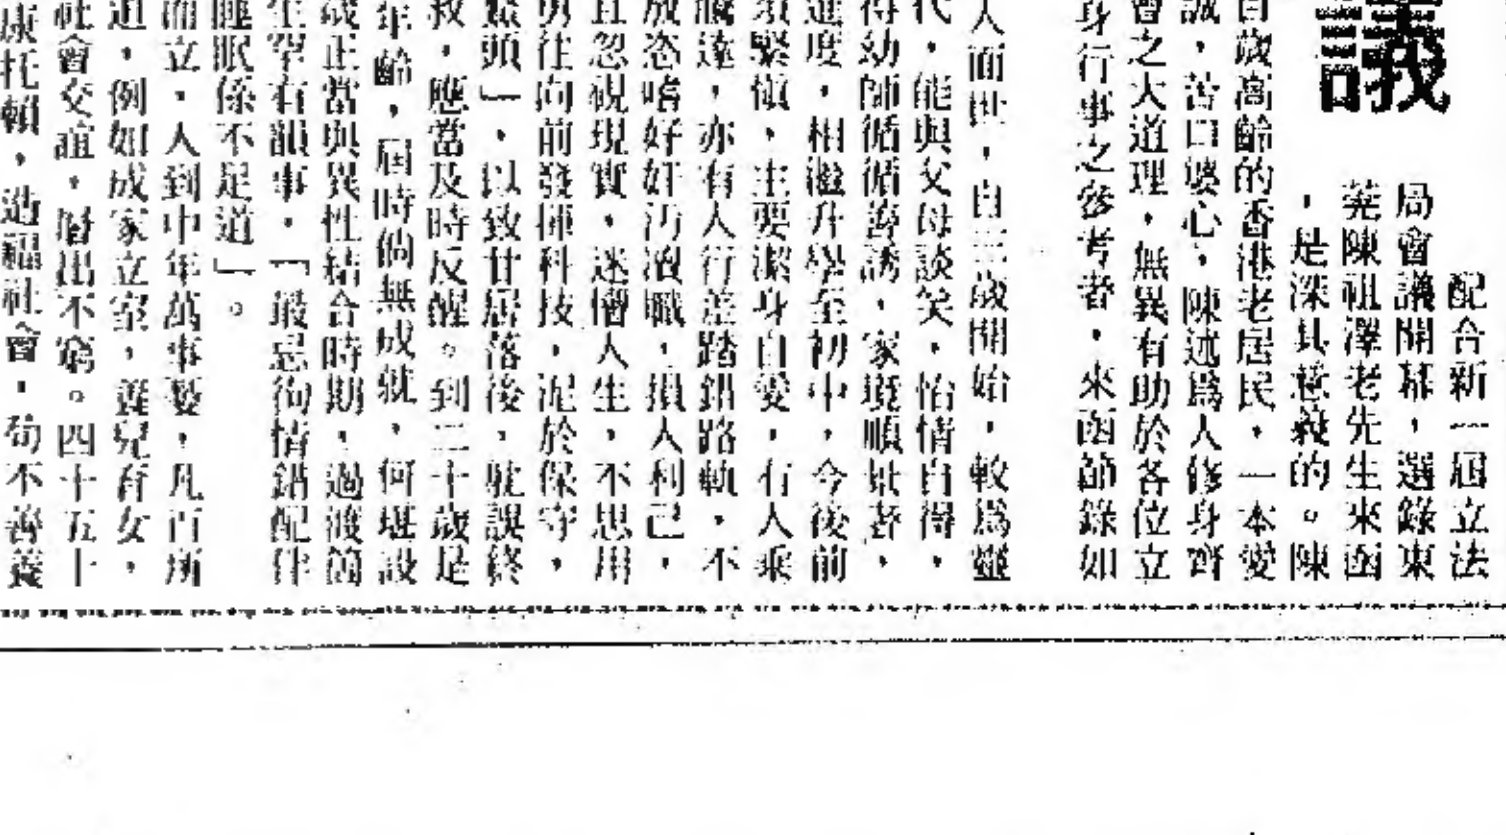 議
配合新一屆立法
局會議開幕，選錄東
莞陳祖澤老先生來函
，是深具意義的。陳
百歲高齡的香港老居民，一本愛
誠，苦口婆心，陳述爲人修身齊
會之大道理，無異有助於各位立
身行事之參考者，來函節錄如
人面世，自三歲開始，較爲靈
代，能與父母談笑，怡情自得，
得幼師循循善誘，家境順景者，
進度，相繼升學至初中，今後前
須緊愼，主要潔身自愛，有人乘
騰達，亦有人行差踏錯路軌，不
放恣嗜好奸汚瀆職，損人利己，
且忽視現實，迷懵人生，不思用
勇往向前發揮科技，泥於保守，
緊頭」，以致甘居落後，躭誤終
救，應當及時反醒。到二十歲是
年齡，屆時倘無成就，何堪設
歲正當與異性結合時期，過渡簡
生罕有韻事，「最忌徇情錯配伴
睡眠係不足道」。
而立，人到中年萬事憂，凡百所
迫，例如成家立室，養兒育女，
社會交誼，層出不窮。四十五十
康托賴，造福社會，苟不善養